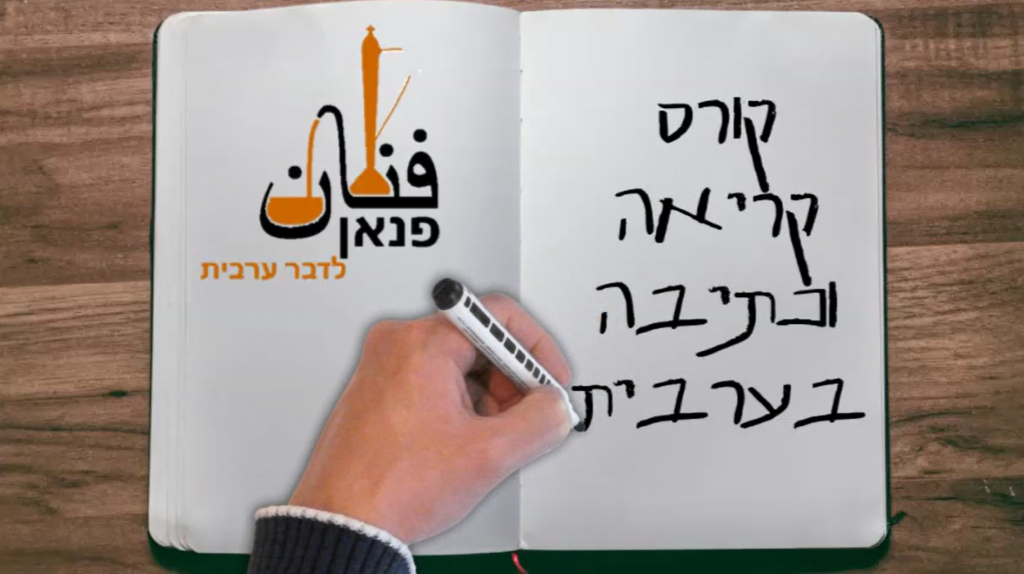 فنان
פנאן
לדבר ערבית
קורס
קריאה
וכתיבה
בערבית